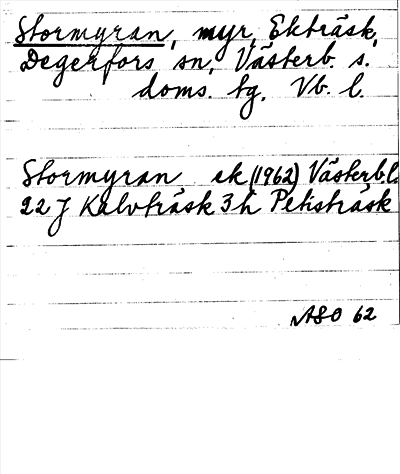 Stormyran, myr, Ekträsk,
Degerfors sn, Västerb. s.
doms. tg, Vb. l.
Stormyran ek (1962) Västerb.l.
22 J Kalvträsk 3 h Petisträsk
ASO 62